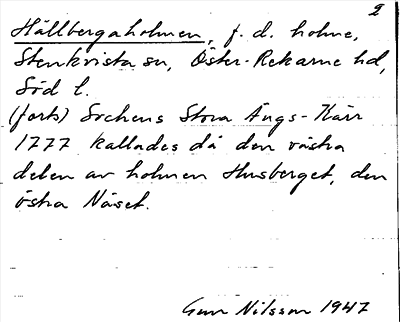 2
Hällbergaholmen, f. d. holme,
Stenkvista sn, Öster-Rekarne hd,
Söd l.
(forts) Sockens Stora Ängs-Kärr
1777 kallades då den västra
delen av holmen Husberget, den
östra Näset.
Gun Nilsson 1947